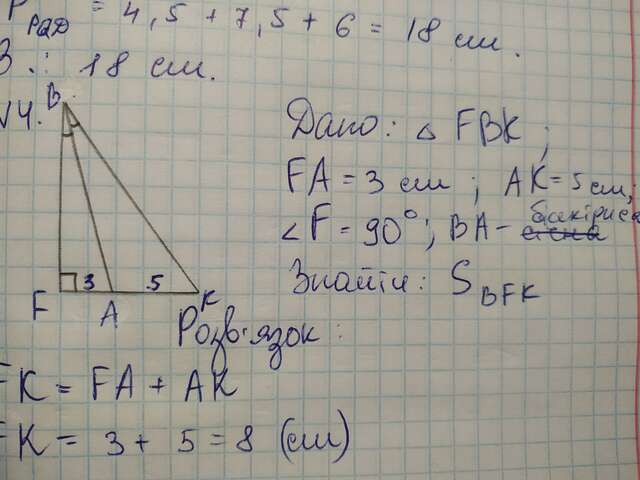 P РАД = 4,5 + 7,5 + 6 = 18 см.
В.: 18 см.
№4.
B
3 5
F A K
Дано: △ FBK;
FA = 3 см; AK = 5 см;
∠F = 90°; BA - бісектриса
Знайти: S BFK
Розв'язок:
FK = FA + AK
FK = 3 + 5 = 8 (см)